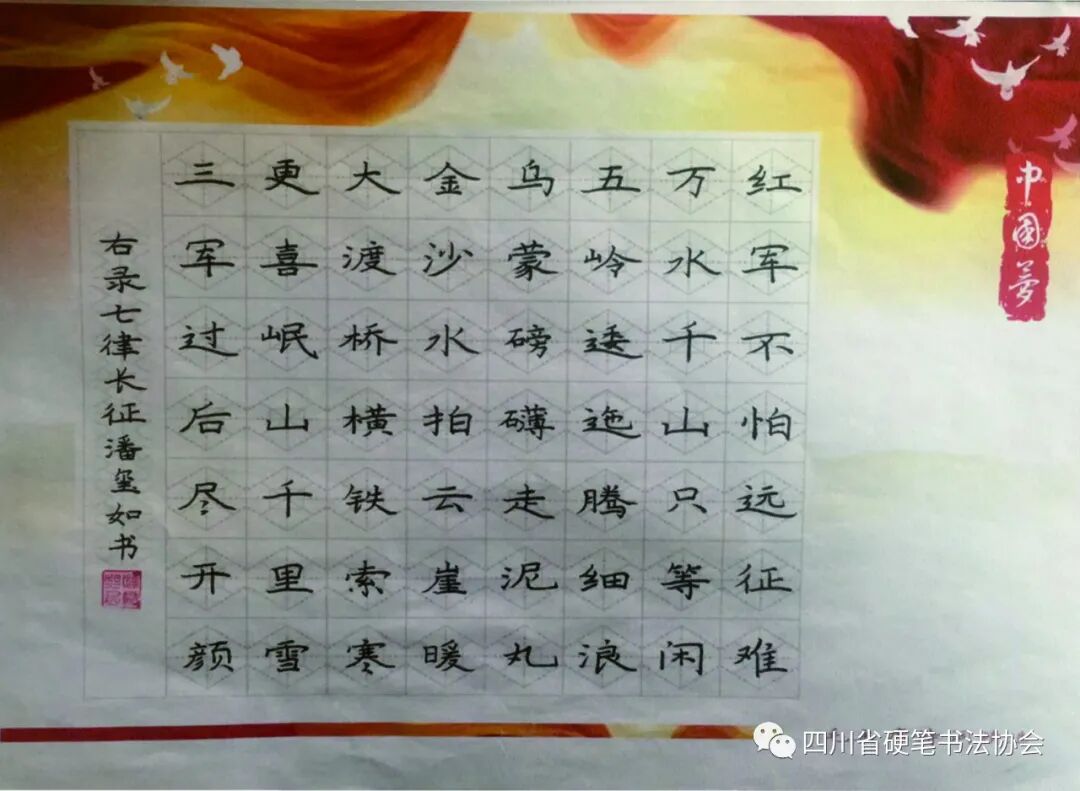 中国梦
红军不怕远征难
万水千山只等闲
五岭逶迤腾细浪
乌蒙磅礴走泥丸
金沙水拍云崖暖
大渡桥横铁索寒
更喜岷山千里雪
三军过后尽开颜
右录七律长征潘玺如书
四川省硬笔书法协会